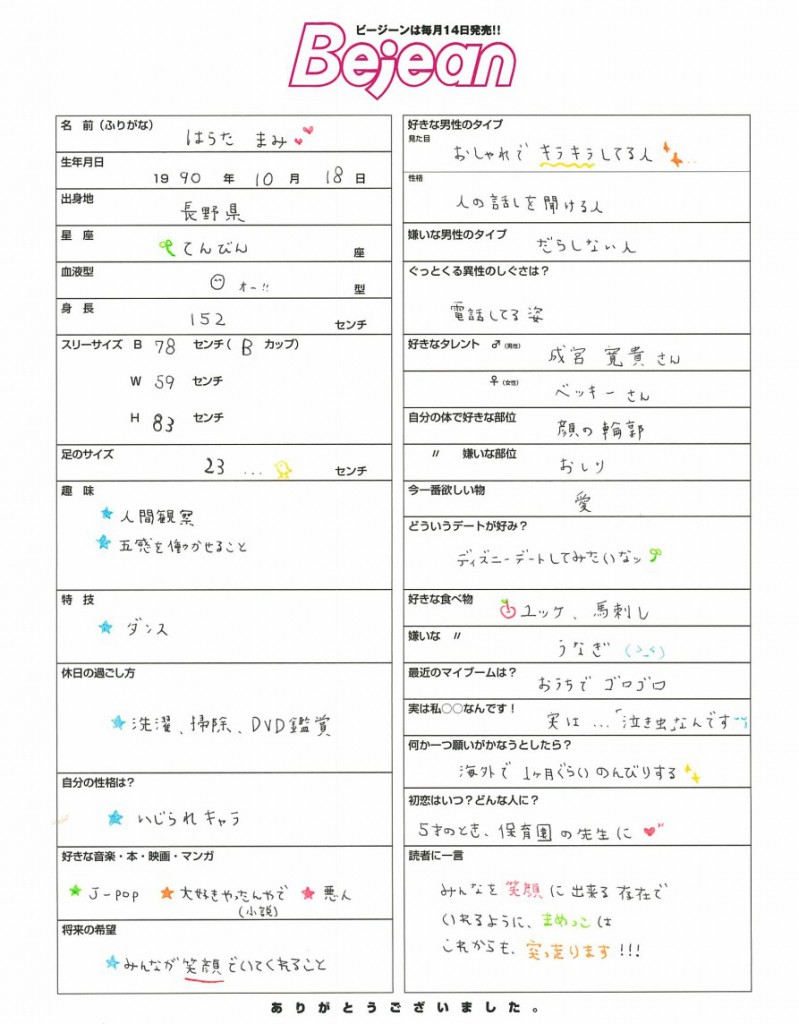 ビージーンは毎月14日発売!!
Bejean
名 前（ふりがな）
はらた まみ
生年月日
1990年 10月 18日
出身地
長野県
星 座
てんびん 座
血液型
O オー!! 型
身 長
152 センチ
スリーサイズ B 78 センチ( B カップ)
W 59 センチ
H 83 センチ
足のサイズ
23 ... センチ
趣 味
★ 人間観察
★ 五感を働かせること
特 技
★ ダンス
休日の過ごし方
★ 洗濯、掃除、DVD鑑賞
自分の性格は？
★ いじられキャラ
好きな音楽・本・映画・マンガ
★ J-POP ★ 大好きやったんやで ★ 悪人
(小説)
将来の希望
★ みんなが笑顔でいてくれること
好きな男性のタイプ
見た目
おしゃれでキラキラしてる人
性格
人の話しを聞ける人
嫌いな男性のタイプ
だらしない人
ぐっとくる異性のしぐさは？
電話してる姿
好きなタレント ♂（男性）
成宮 寛貴さん
♀（女性）
ベッキーさん
自分の体で好きな部位
顔の輪郭
〃 嫌いな部位
おしり
今一番欲しい物
愛
どういうデートが好み？
ディズニーデートしてみたいなッ
好きな食べ物
ユッケ、馬刺し
嫌いな 〃
うなぎ (>_<)
最近のマイブームは？
おうちで ゴロゴロ
実は私〇〇なんです！
実は...「泣き虫」なんです
何か一つ願いがかなうとしたら？
海外で 1ヶ月ぐらい のんびりする
初恋はいつ？どんな人に？
5才のとき、保育園の先生に
読者に一言
みんなを笑顔に出来る存在で
いれるように、まめっこは
これからも、突っ走ります!!!
ありがとうございました。